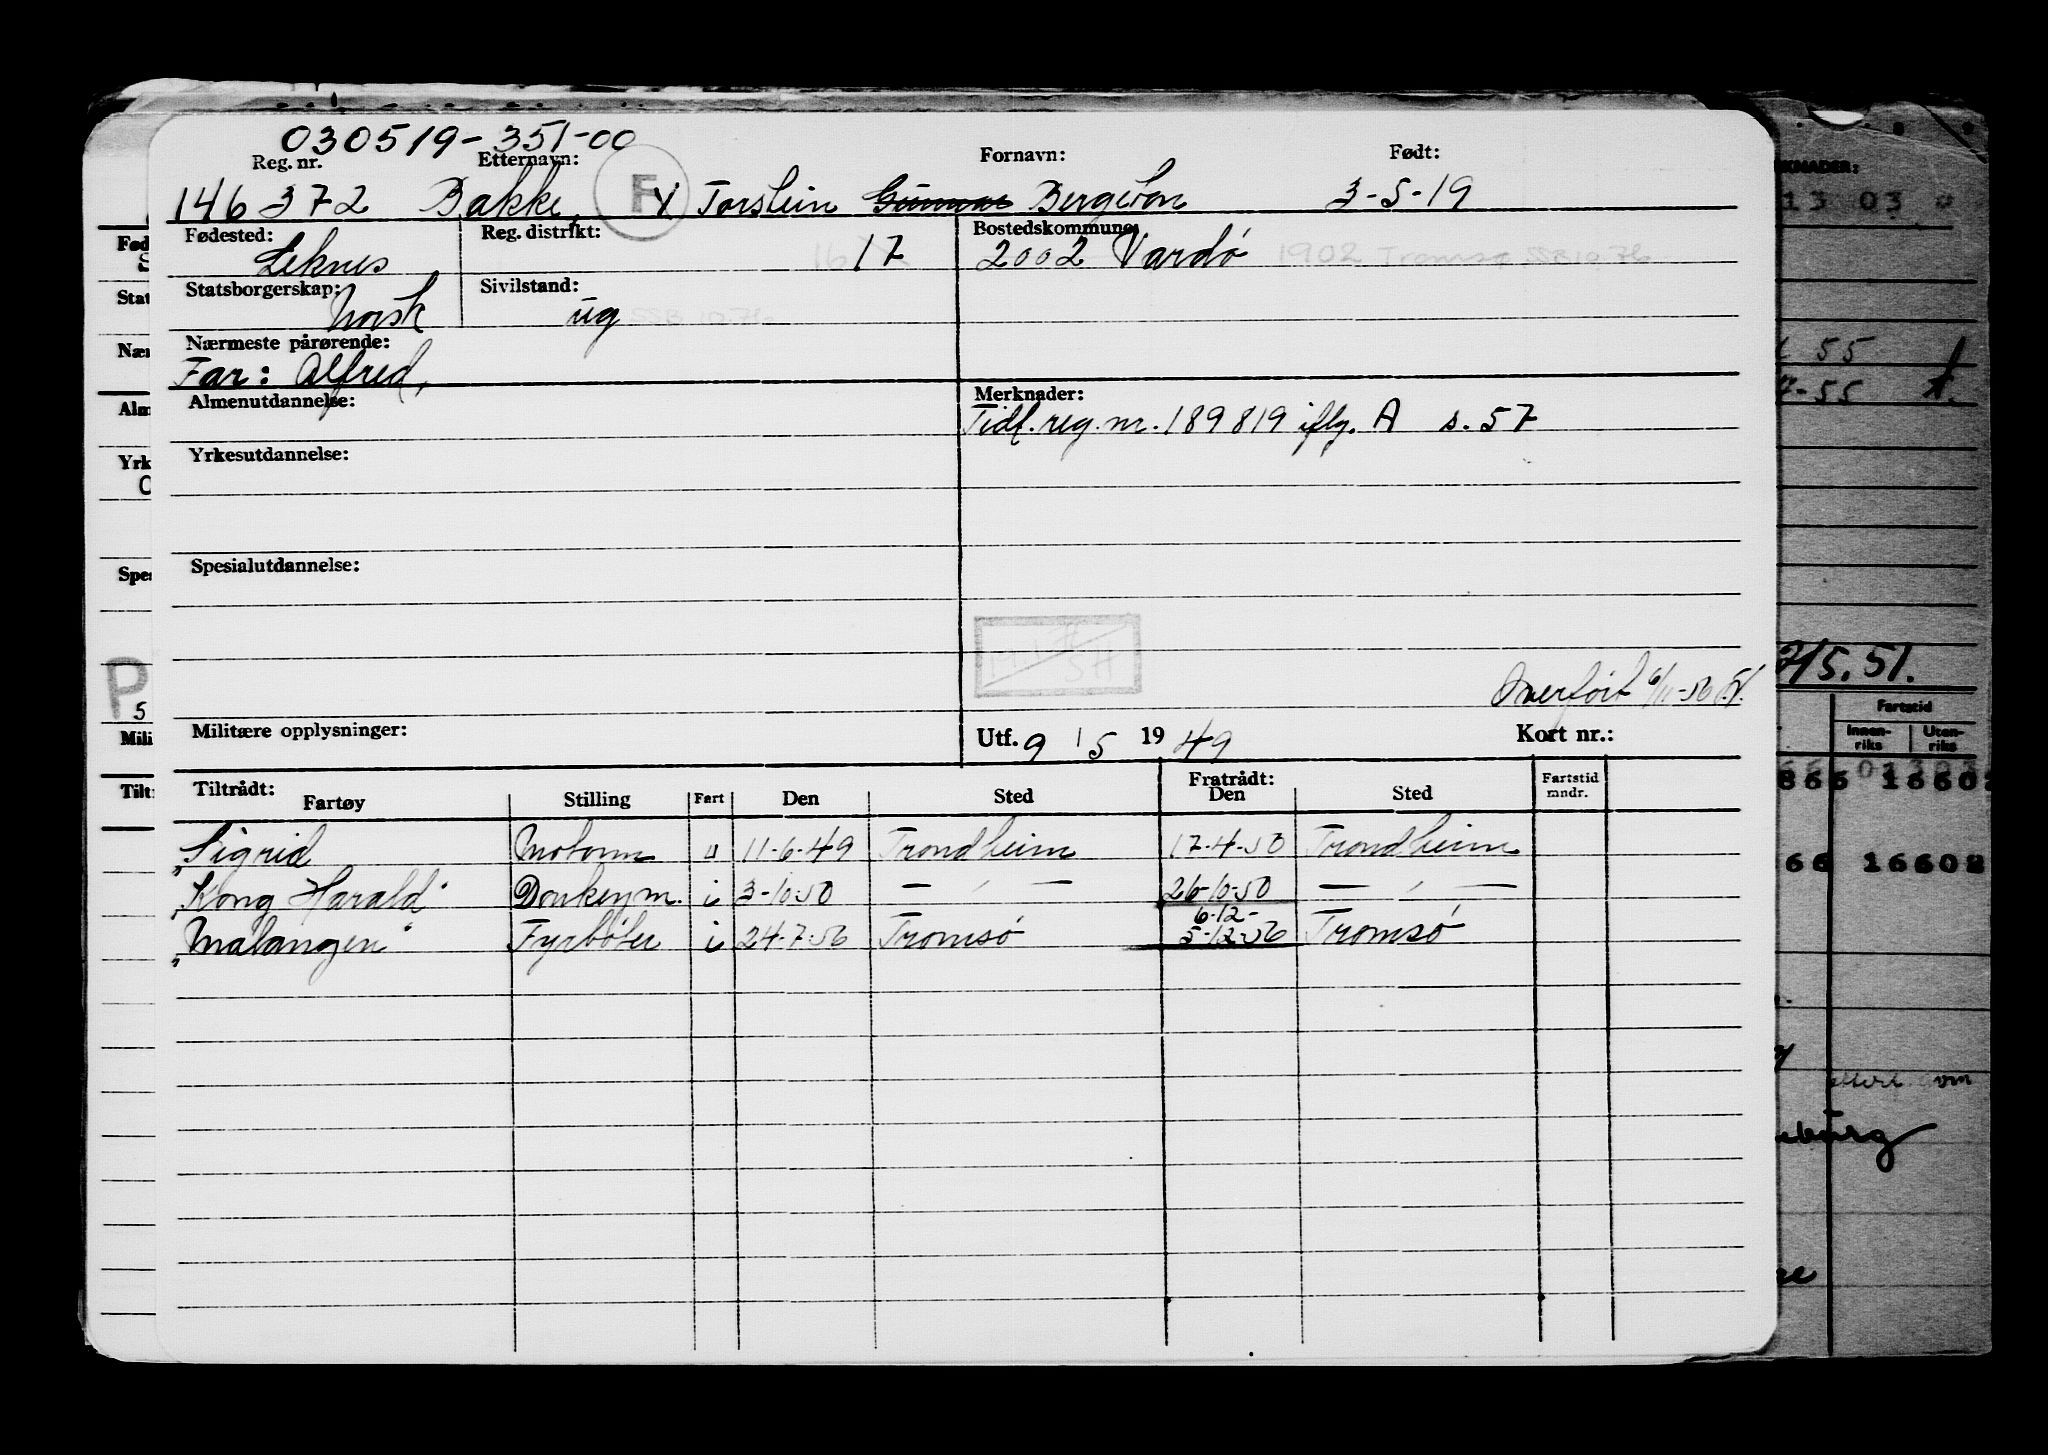 030519-351-00
Reg. nr. Etternavn: Fornavn: Født:
146372 Bakke, F X Torstein Gunnar Bergeton 3-5-19
Fødested: Reg. distrikt: Bostedskommune:
Leknes 17 2002 Vardö 1902 Tromsø SSB 10.76
Statsborgerskap: Sivilstand:
Norsk ug SSB 10.76
Nærmeste pårørende:
Far: Alfred,
Almenutdannelse: Merknader:
Tidl. reg. nr. 189819 iflg. A s. 57
Yrkesutdannelse:
Spesialutdannelse:
Overført 6/11-56
Militære opplysninger: Utf. 9/5 1949 Kort nr.:
Tiltrådt: Fratrådt: Fartstid
Fartøy Stilling Fart Den Sted Den Sted mndr.
"Sigrid Motorm u 11-6-49 Trondheim 17-4-50 Trondheim
"Kong Harald" Donkeym. i 3-10-50 — " — 26-10-50 — " —
6-12-
"Malangen" Fyrbøter i 24-7-56 Tromsö 5-12-56 Tromsö
KNADER:
13 03
55
-55
2/5.51.
Fartstid
Innen-riks Uten-riks
866 16602
66 16602
Fød
Stat
Nær
Alm
Yrk
Spes
P
5
Mili
Tilt